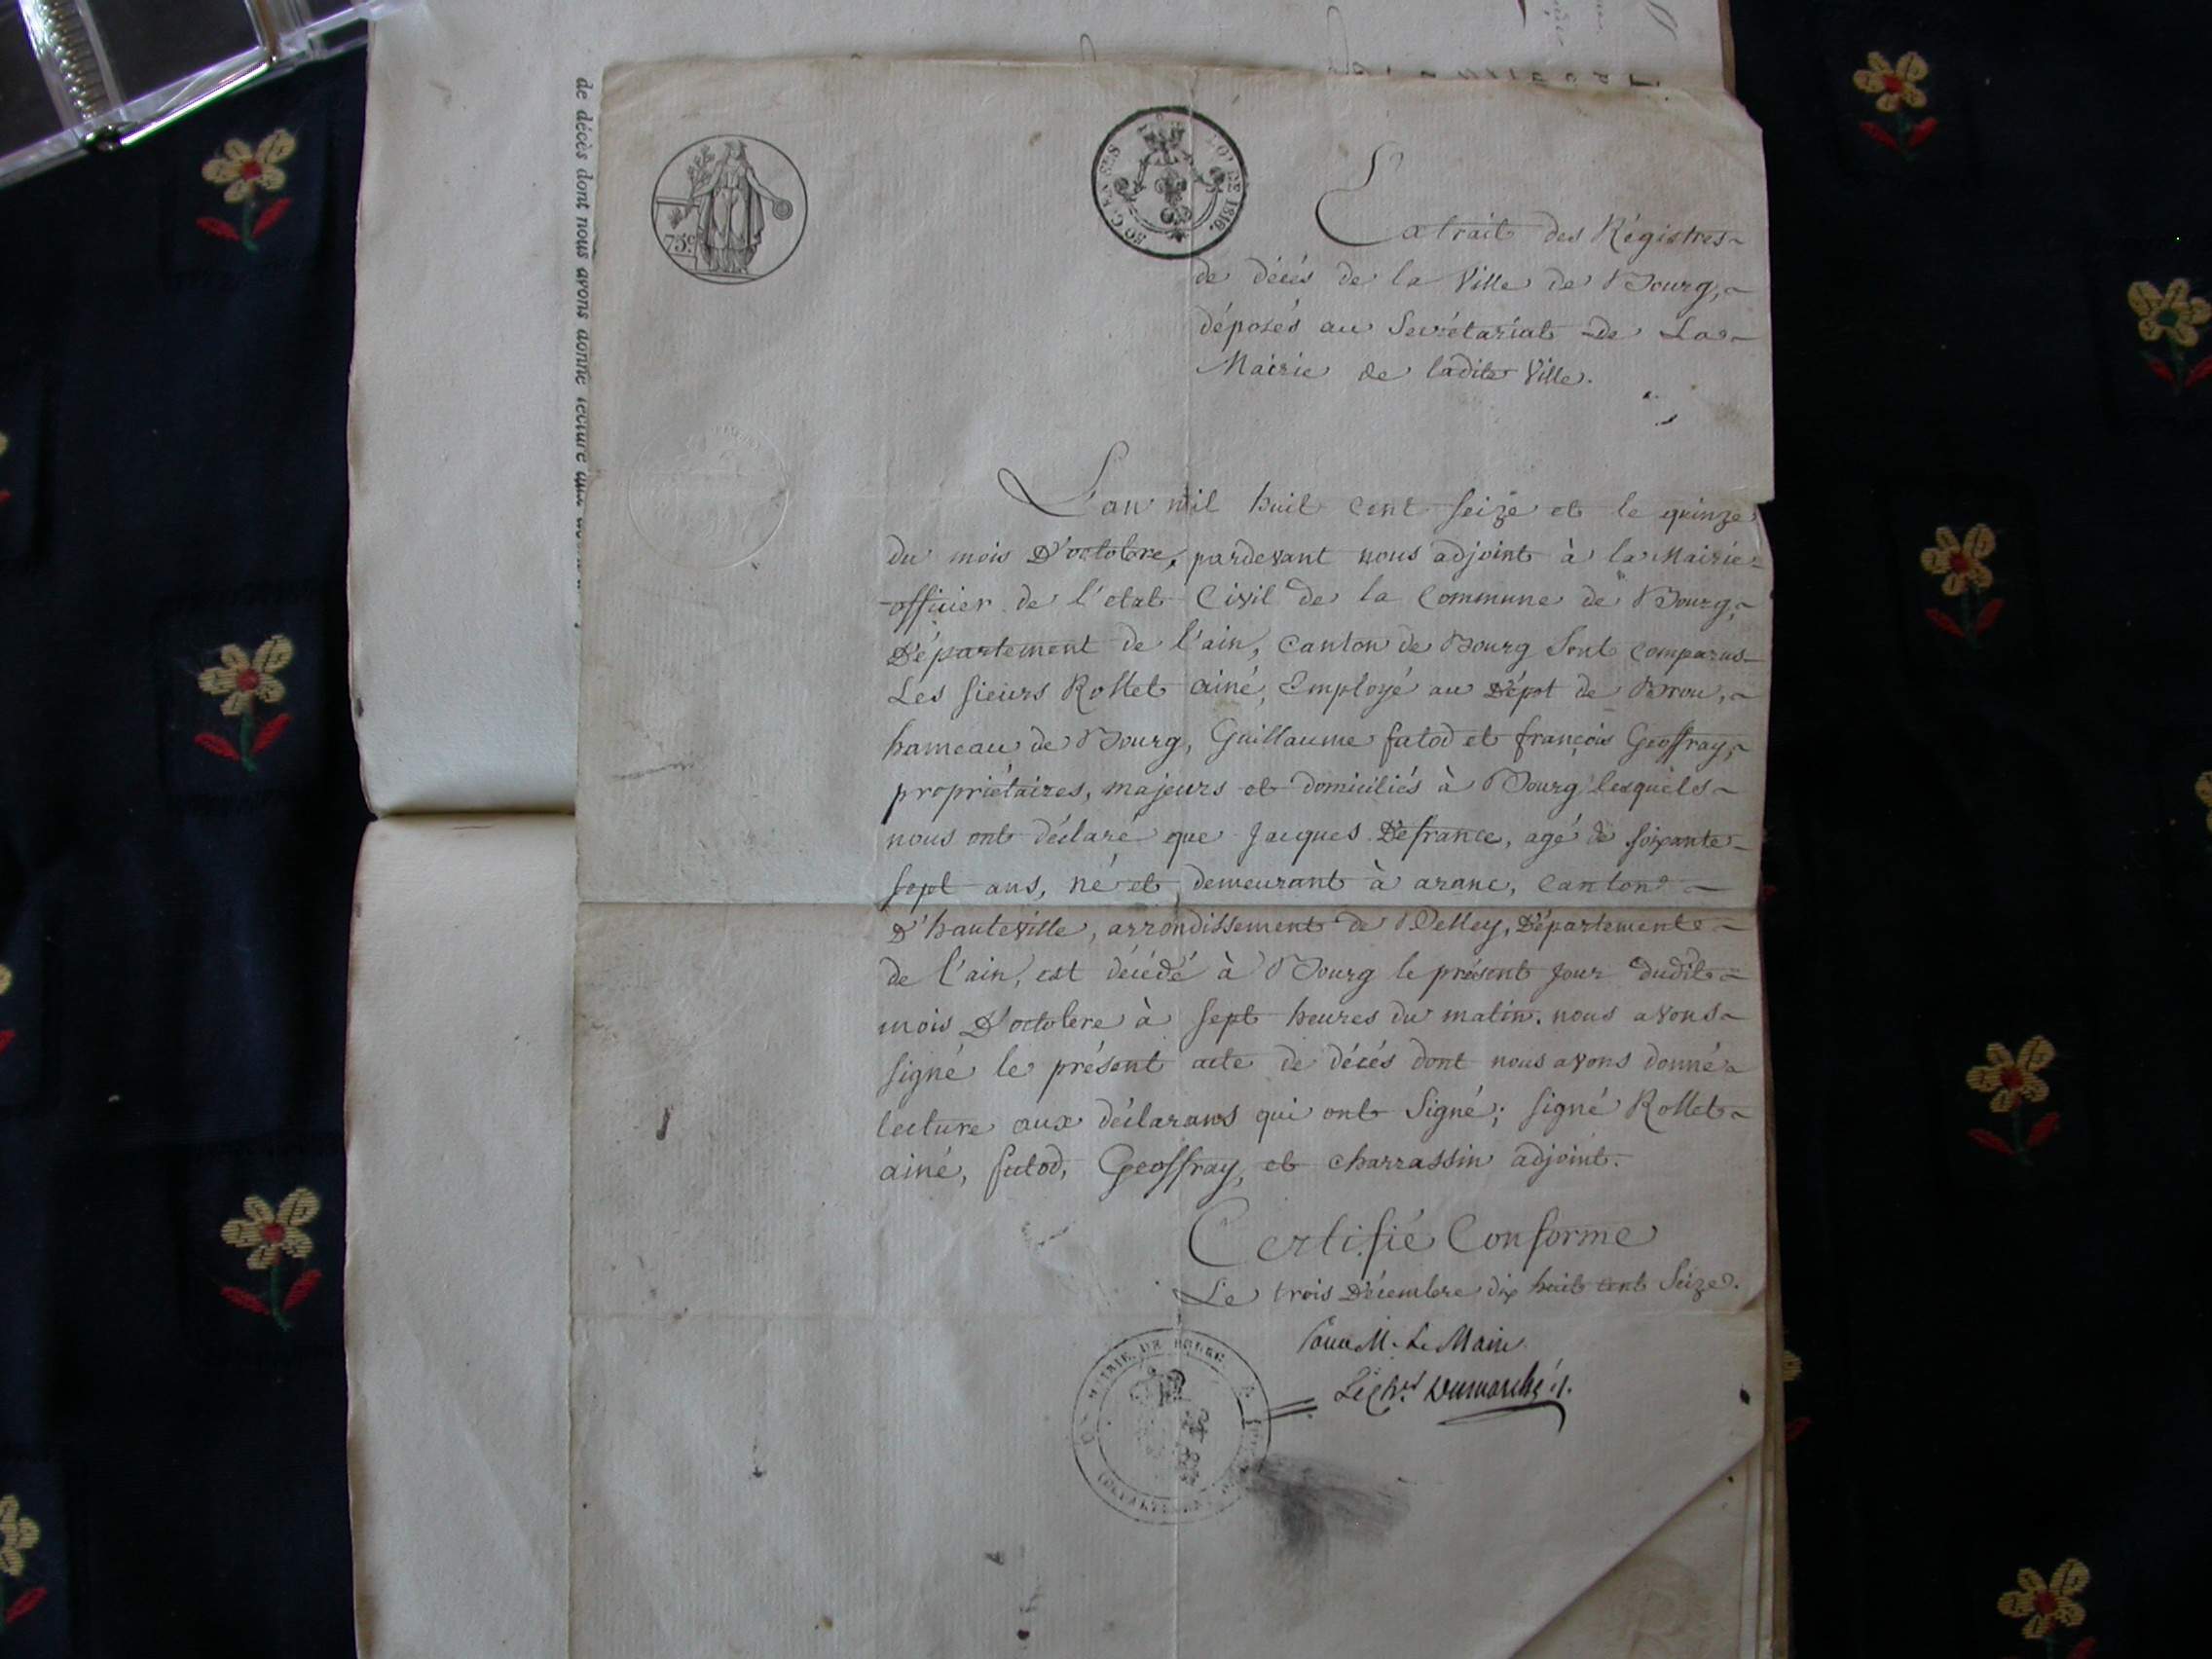 de décès dont nous avons donné lecture aux
75c
50 C. EN SUS
LOI DE 1816.
Extrait des Régistres
de décès de la Ville de Bourg,
déposés au Secrétariat de La
Mairie de ladite Ville.
L'an mil huit cent seize et le quinze
du mois D'octobre, pardevant nous adjoint à la Mairie
officier de l'etat Civil de la Commune de Bourg,
Département de l'ain, canton de Bourg sont comparus
Les sieurs Rollet ainé, Employé au Dépot de Brou,
hameau de Bourg, Guillaume futod et françois Geoffray,
propriétaires, majeurs et domiciliés à Bourg lesquels
nous ont déclaré que Jacques Defrance, agé de soixante
sept ans, né et demeurant à aranc, canton
D'hauteville, arrondissement de Belley, Département
de l'ain, est décédé à Bourg le présent jour dudit
mois D'octobre à sept heures du matin. nous avons
signé le présent acte de décés dont nous avons donné
lecture aux déclarans qui ont Signé; signé Rollet
ainé, futod, Geoffray, et charrassin adjoint.
Certifié Conforme
Le trois Décembre dix huit cent Seize.
Pour M. Le Maire
Le Cher Dumarché
MAIRIE DE BOURG
DÉPARTEMENT